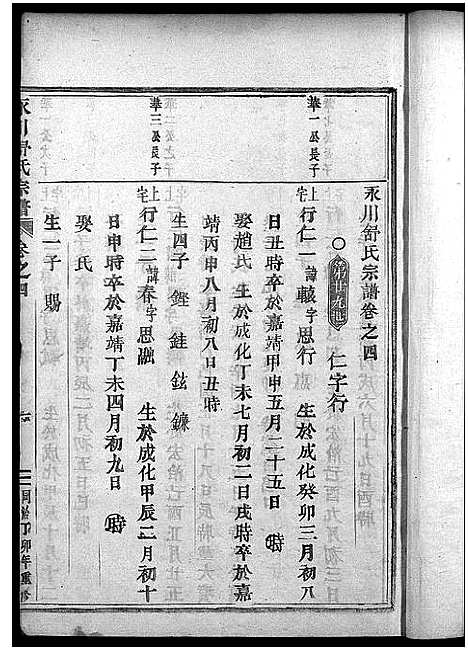 永川舒氏宗譜卷之四
第廿九世 仁字行
華一公長子
上宅行仁一諱轅字思行 生於成化癸卯三月初八
日丑時卒於嘉靖甲申五月二十五日 時
娶趙氏生於成化丁未七月初二日戌時卒於嘉
靖丙申八月初八日丑時
生四子 鏗 銈 鉉 鐮
華三公長子
上宅行仁二諱春字思融 生於成化甲辰二月初十
日申時卒於嘉靖丁未四月初九日 時
娶 氏
生一子 賜
永川舒氏宗譜 卷之四 六
丁卯年重修